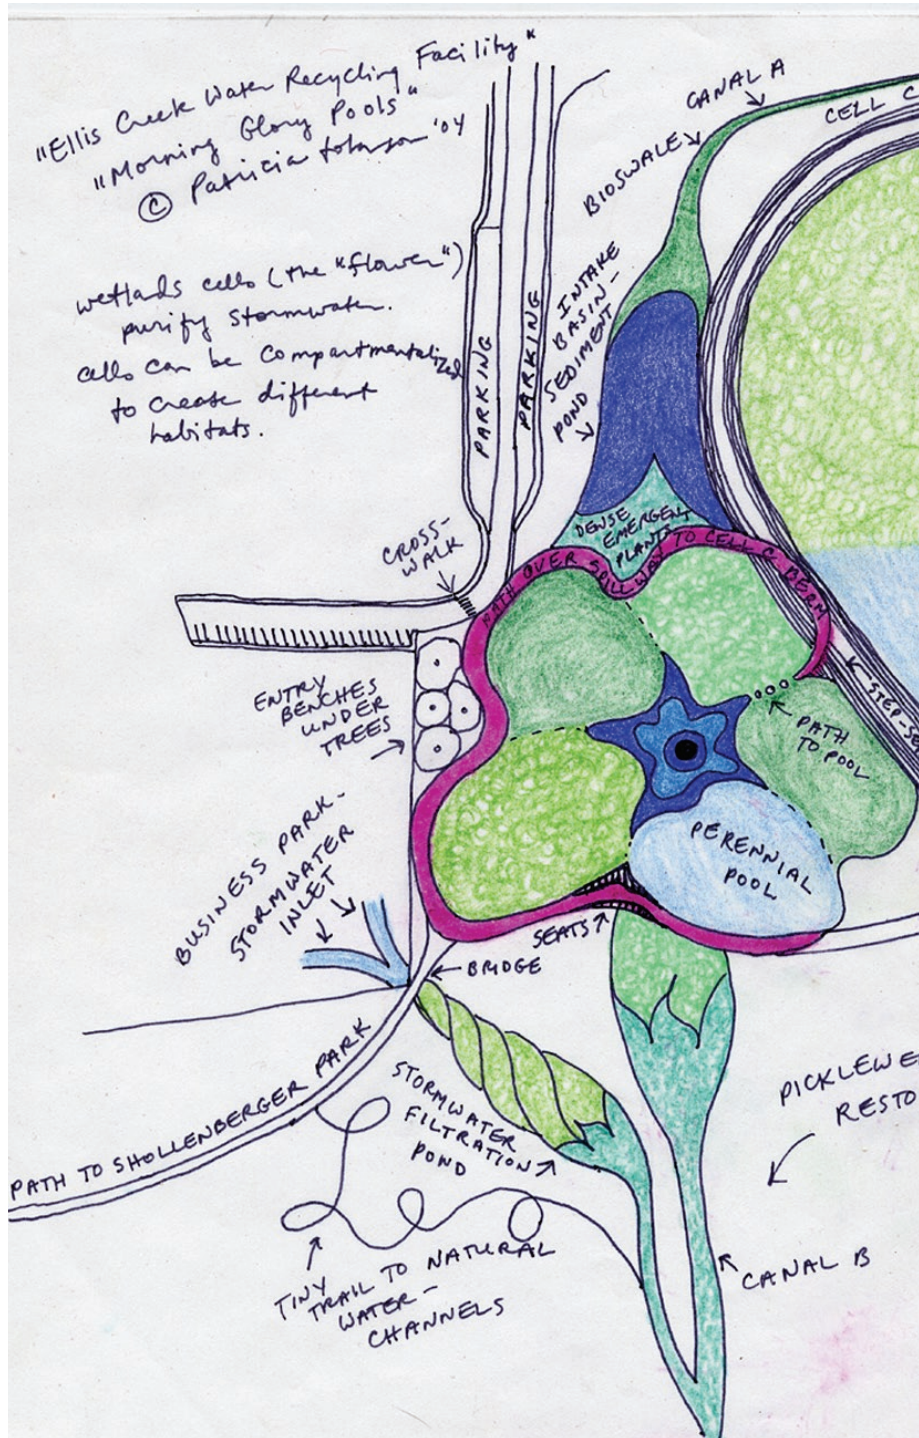 "Ellis Creek Water Recycling Facility"
"Morning Glory Pools"
© Patricia Johanson '04
wetlands cells (the "flower")
purify stormwater.
cells can be compartmentalized
to create different
habitats.
CANAL A
CELL C
BIOSWALE
INTAKE
BASIN-
SEDIMENT
POND
PARKING
PARKING
DENSE
EMERGENT
PLANTS
CROSS-
WALK
PATH OVER SPILLWAY TO CELL C BERM
ENTRY
BENCHES
UNDER
TREES
STEP-SE
PATH
TO POOL
PERENNIAL
POOL
BUSINESS PARK-
STORMWATER
INLET
SEATS
BRIDGE
PATH TO SHOLLENBERGER PARK
STORMWATER
FILTRATION
POND
PICKLEWE
RESTO
TINY
TRAIL TO NATURAL
WATER-
CHANNELS
CANAL B